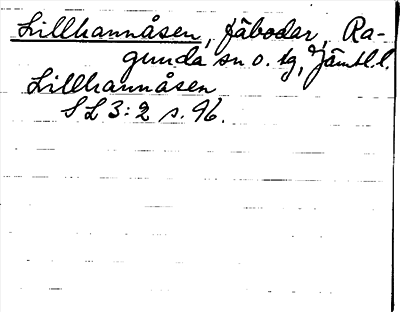 Lillhannåsen, fäbodar, Ra-
gunda sn o. tg, Jämtl.l.
Lillhannåsen
SL 3:2 s. 96.